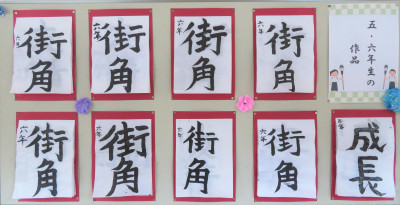 五・六年生の
作品
街角
六年
街角
六年
街角
六年
街角
六年
成長
街角
六年
街角
六年
街角
六年
街角
六年